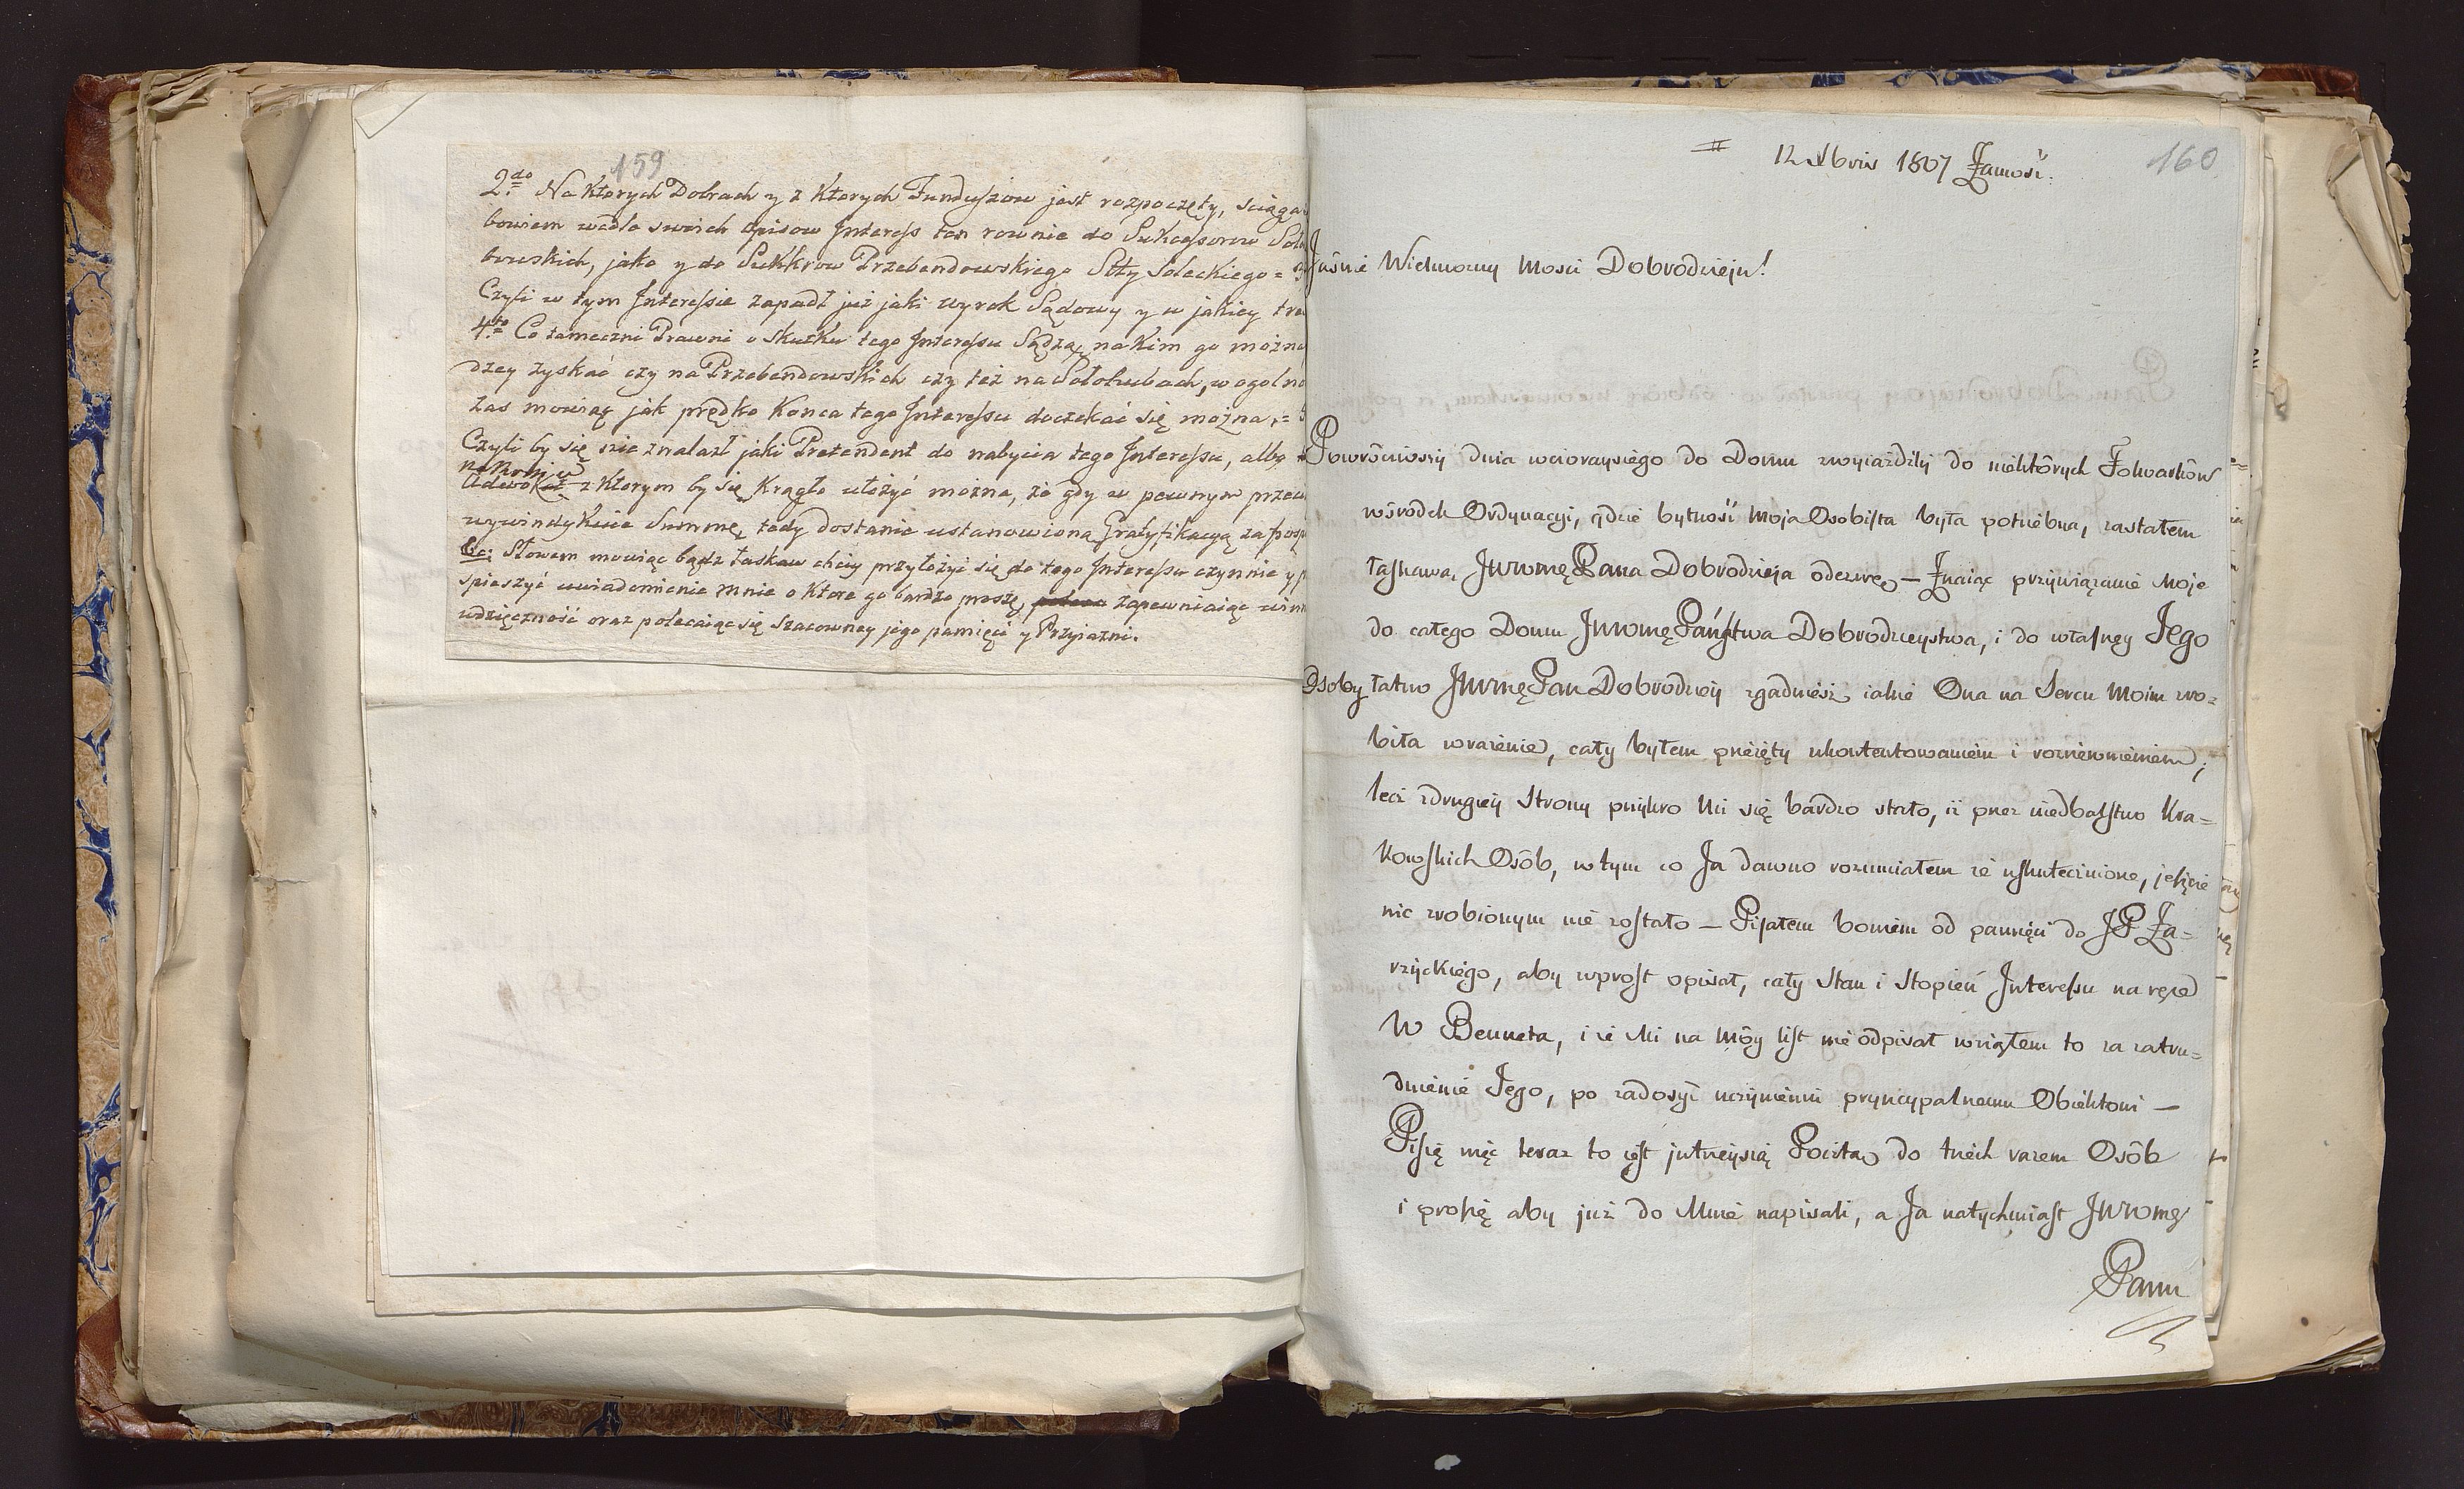 159
2do Na Ktorych Dobrach y z Ktorych Funduszow jest rozpoczęty, sciąga
bowiem wedle swoich opisow Interess ten rownie do Sukcessorow
bowskich, jako y do Sukkrow Przebendowskiego Stty Soleckiego =
Czyli w tym Interessie zapadł już jaki wyrok Sądowy y w jakiey
4to Co tameczni Prawni o Skutku tego Interessu Sądzą, na Kim go można
dzey zyskać czy na Przebendowskich czy też na Sołohubach, w ogolno
zas mowiąc jak prędko Konca tego Interessu doczekać się można, =
Czyli by się nie znalazł jaki Pretendent do nabycia tego Interessu, albo
nakoniec
Adwokat z Ktorym by się Krągło ułożyć można, że gdy w pewnym
wywindykuie Summę, tedy dostanie ustanowioną Gratyfikacyą za
&c: Słowem mowiąc bądz łaskaw chciey przyłożyć się do tego Interessu czynnie y
spieszyć uwiadomienie mnie o Ktore go bardzo proszę, zapewniaiąc
wdzięczność oraz polecaiąc się Szacowney jego pamięci y Przyiazni.
160
12 Xbris 1807 Zamość.
Jaśnie Wielmożny Mości Dobrodzieju!
Powróciwszy dnia wczorayszego do Domu zwyiażdżki do niektórych Folwarków
wśrodek Ordynacyi, gdzie bytność Moja Osobista była potrzebna, zastałem
łaskawą JWWmę Pana Dobrodzieja odezwę — Znaiąc przywiązanie Moje
do całego Domu JWWmę Państwa Dobrodzieystwa, i do własney Jego
Osoby łatwo JWWmę Pan Dobrodziey zgadniesz iakie Ona na Sercu Moim zro=
biła wrażenie, cały byłem przeięty ukontentowaniem i rozrzewnieniem;
lecz zdrugiey Strony przykro Mi się bardzo stało, iż przez niedbalstwo Kra=
kowskich Osób, w tym co Ja dawno rozumiałem że uskutecznione, jeszcze
nic zrobionym nie zostało — Pisałem bowiem od pamięci do JP Za=
rzyckiego, aby wprost opisał, cały Stan i Stopień Interessu na ręce
W Benneta, i że Mi na móy list nie odpisał wziąłem to za zatru=
dnienie Jego, po zadosyć uczynieniu pryncypalnemu Obiektowi —
Piszę więc teraz to iest jutrzeyszą Pocztą do trzech razem Osób
i proszę aby już do Mnie napisali, a Ja natychmiast JWWmę
Panu